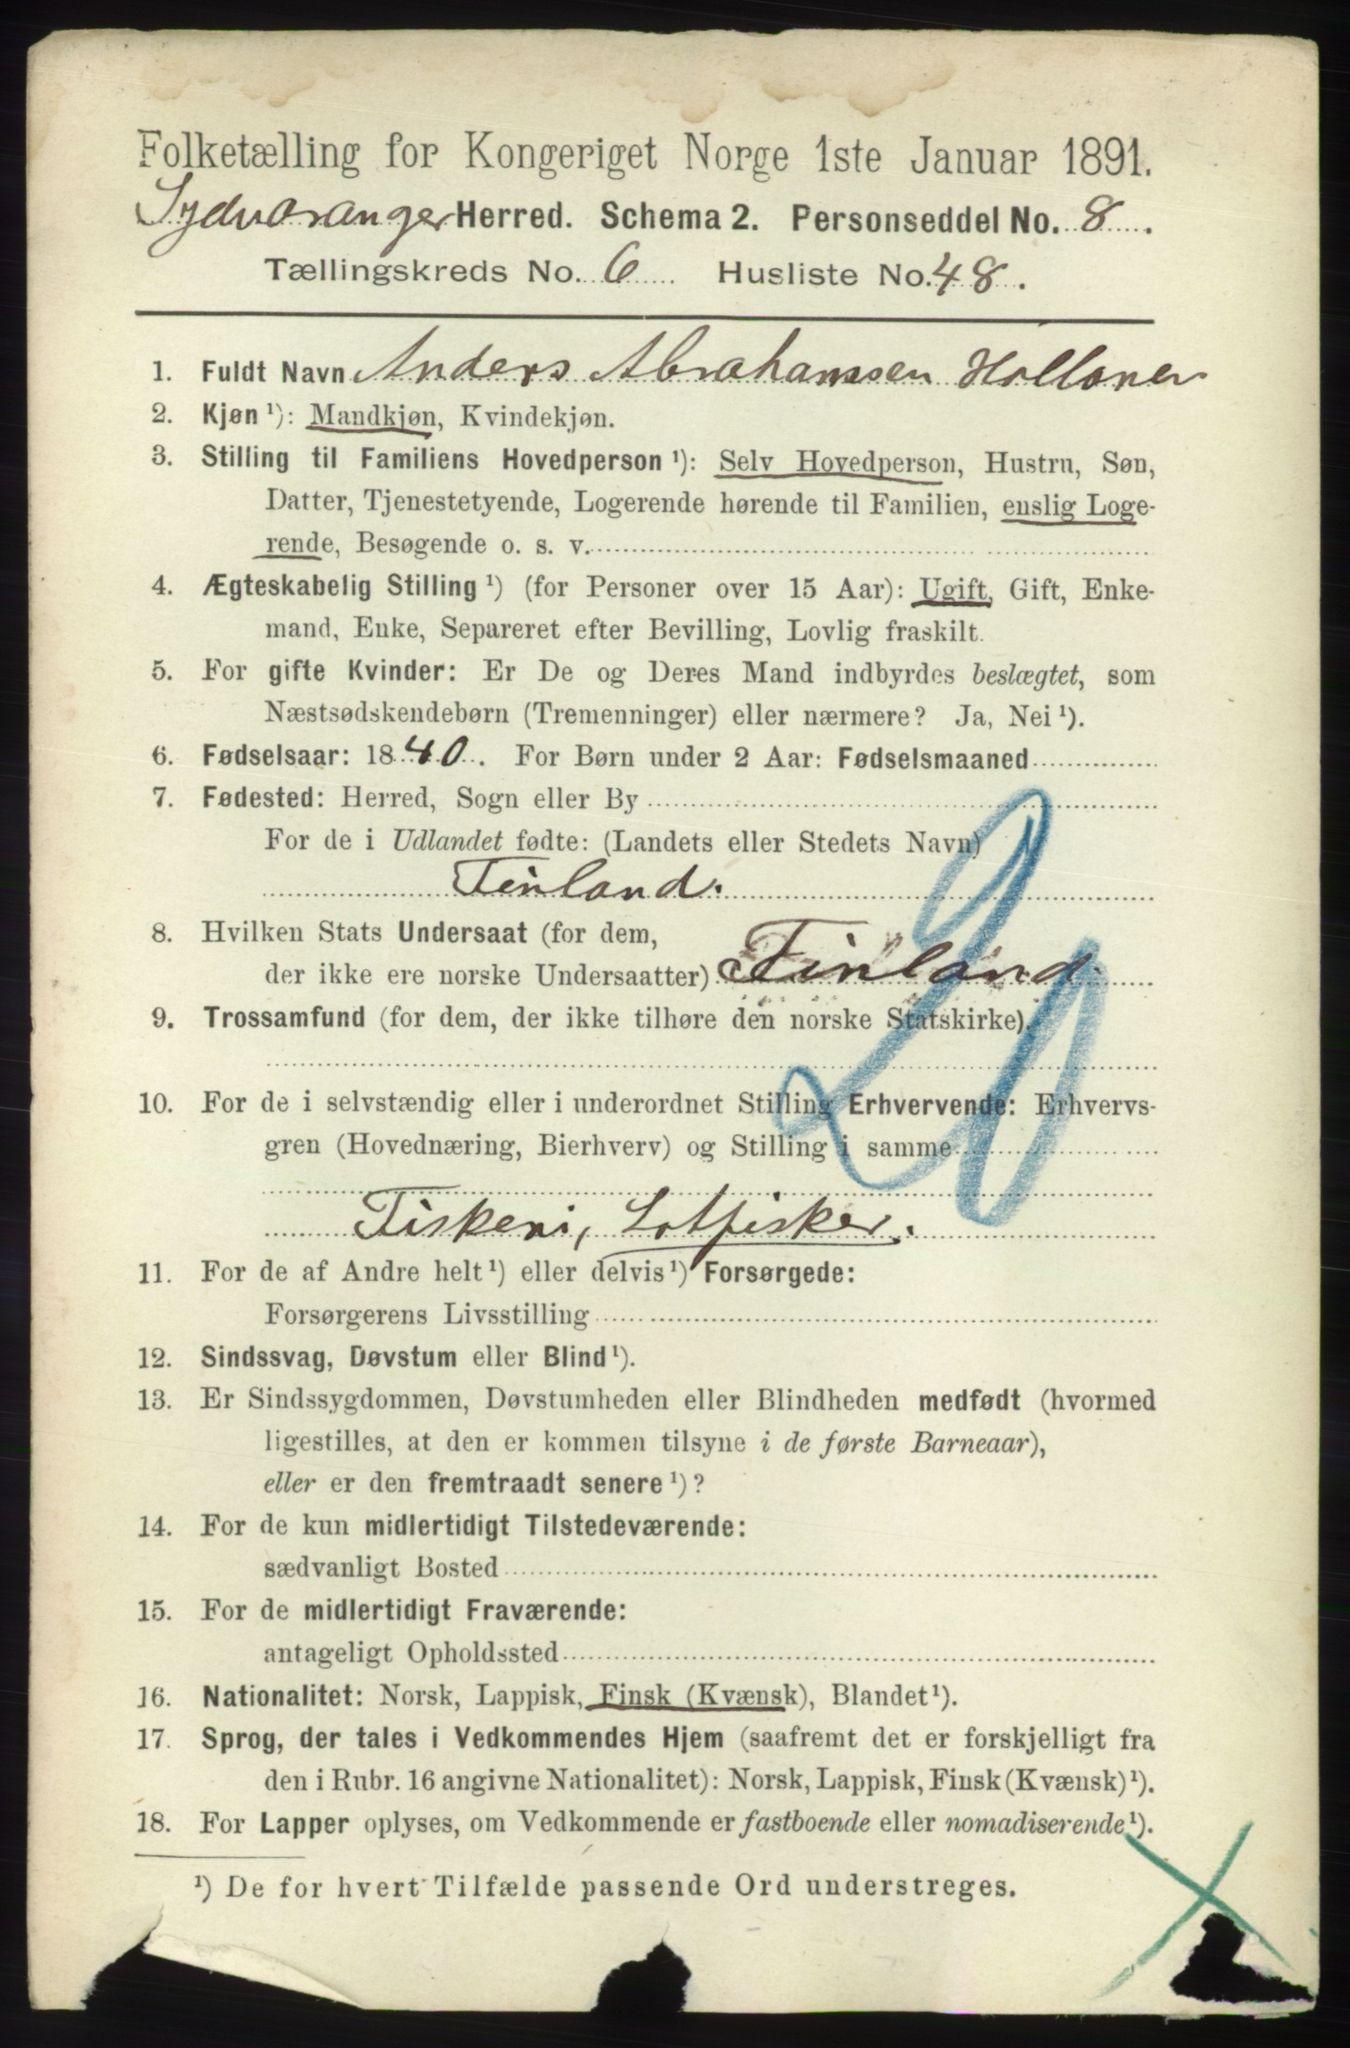 Folketælling for Kongeriget Norge 1ste Januar 1891.
Sydvaranger Herred. Schema 2. Personseddel No. 8.
Tællingskreds No. 6 Husliste No. 48.
1. Fuldt Navn Anders Abrahamsen
2. Kjøn ¹): Mandkjøn, Kvindekjøn.
3. Stilling til Familiens Hovedperson ¹): Selv Hovedperson, Hustru, Søn,
Datter, Tjenestetyende, Logerende hørende til Familien, enslig Loge-
rende, Besøgende o. s. v.
4. Ægteskabelig Stilling ¹) (for Personer over 15 Aar): Ugift, Gift, Enke-
mand, Enke, Separeret efter Bevilling, Lovlig fraskilt.
5. For gifte Kvinder: Er De og Deres Mand indbyrdes beslægtet, som
Næstsødskendebørn (Tremenninger) eller nærmere? Ja, Nei ¹).
6. Fødselsaar: 1840. For Børn under 2 Aar: Fødselsmaaned
7. Fødested: Herred, Sogn eller By
For de i Udlandet fødte: (Landets eller Stedets Navn)
Finland.
8. Hvilken Stats Undersaat (for dem,
der ikke ere norske Undersaatter) Finland.
9. Trossamfund (for dem, der ikke tilhøre den norske Statskirke).
10. For de i selvstændig eller i underordnet Stilling Erhvervende: Erhvervs-
gren (Hovednæring, Bierhverv) og Stilling i samme
Fiskeri, Lotfisker.
11. For de af Andre helt ¹) eller delvis ¹) Forsørgede:
Forsørgerens Livsstilling
12. Sindssvag, Døvstum eller Blind ¹).
13. Er Sindssygdommen, Døvstumheden eller Blindheden medfødt (hvormed
ligestilles, at den er kommen tilsyne i de første Barneaar),
eller er den fremtraadt senere ¹)?
14. For de kun midlertidigt Tilstedeværende:
sædvanligt Bosted
15. For de midlertidigt Fraværende:
antageligt Opholdssted
16. Nationalitet: Norsk, Lappisk, Finsk (Kvænsk), Blandet ¹).
17. Sprog, der tales i Vedkommendes Hjem (saafremt det er forskjelligt fra
den i Rubr. 16 angivne Nationalitet): Norsk, Lappisk, Finsk (Kvænsk) ¹).
18. For Lapper oplyses, om Vedkommende er fastboende eller nomadiserende ¹).
¹) De for hvert Tilfælde passende Ord understreges.